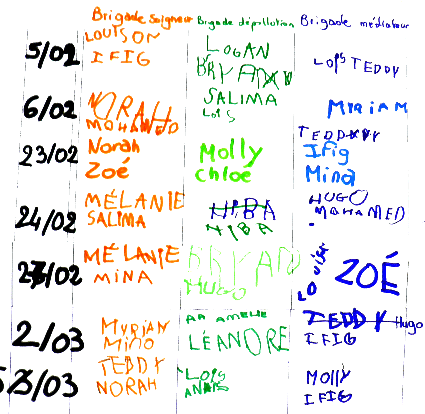 Brigade Soigneur Brigade dépollution Brigade médiateur
5/02 LOUISON LOGAN LoïsTEDDY
IFIG BRYAN
6/02 NORAH SALIMA MYRIAM
MOHAMED LoïS TEDDY
23/02 Norah Molly Ifig
Zoé Chloé Mina
24/02 MÉLANIE HIBA HUGO
SALIMA HIBA MOHAMED
27/02 MÉLANIE BRYAN ZOÉ
MINA HUGO
2/03 Myriam AMELIE TEDDY Hugo
Mina LÉANDRE IFIG
3/03 TEDDY Loïs MOLLY
NORAH ANAïS IFIG